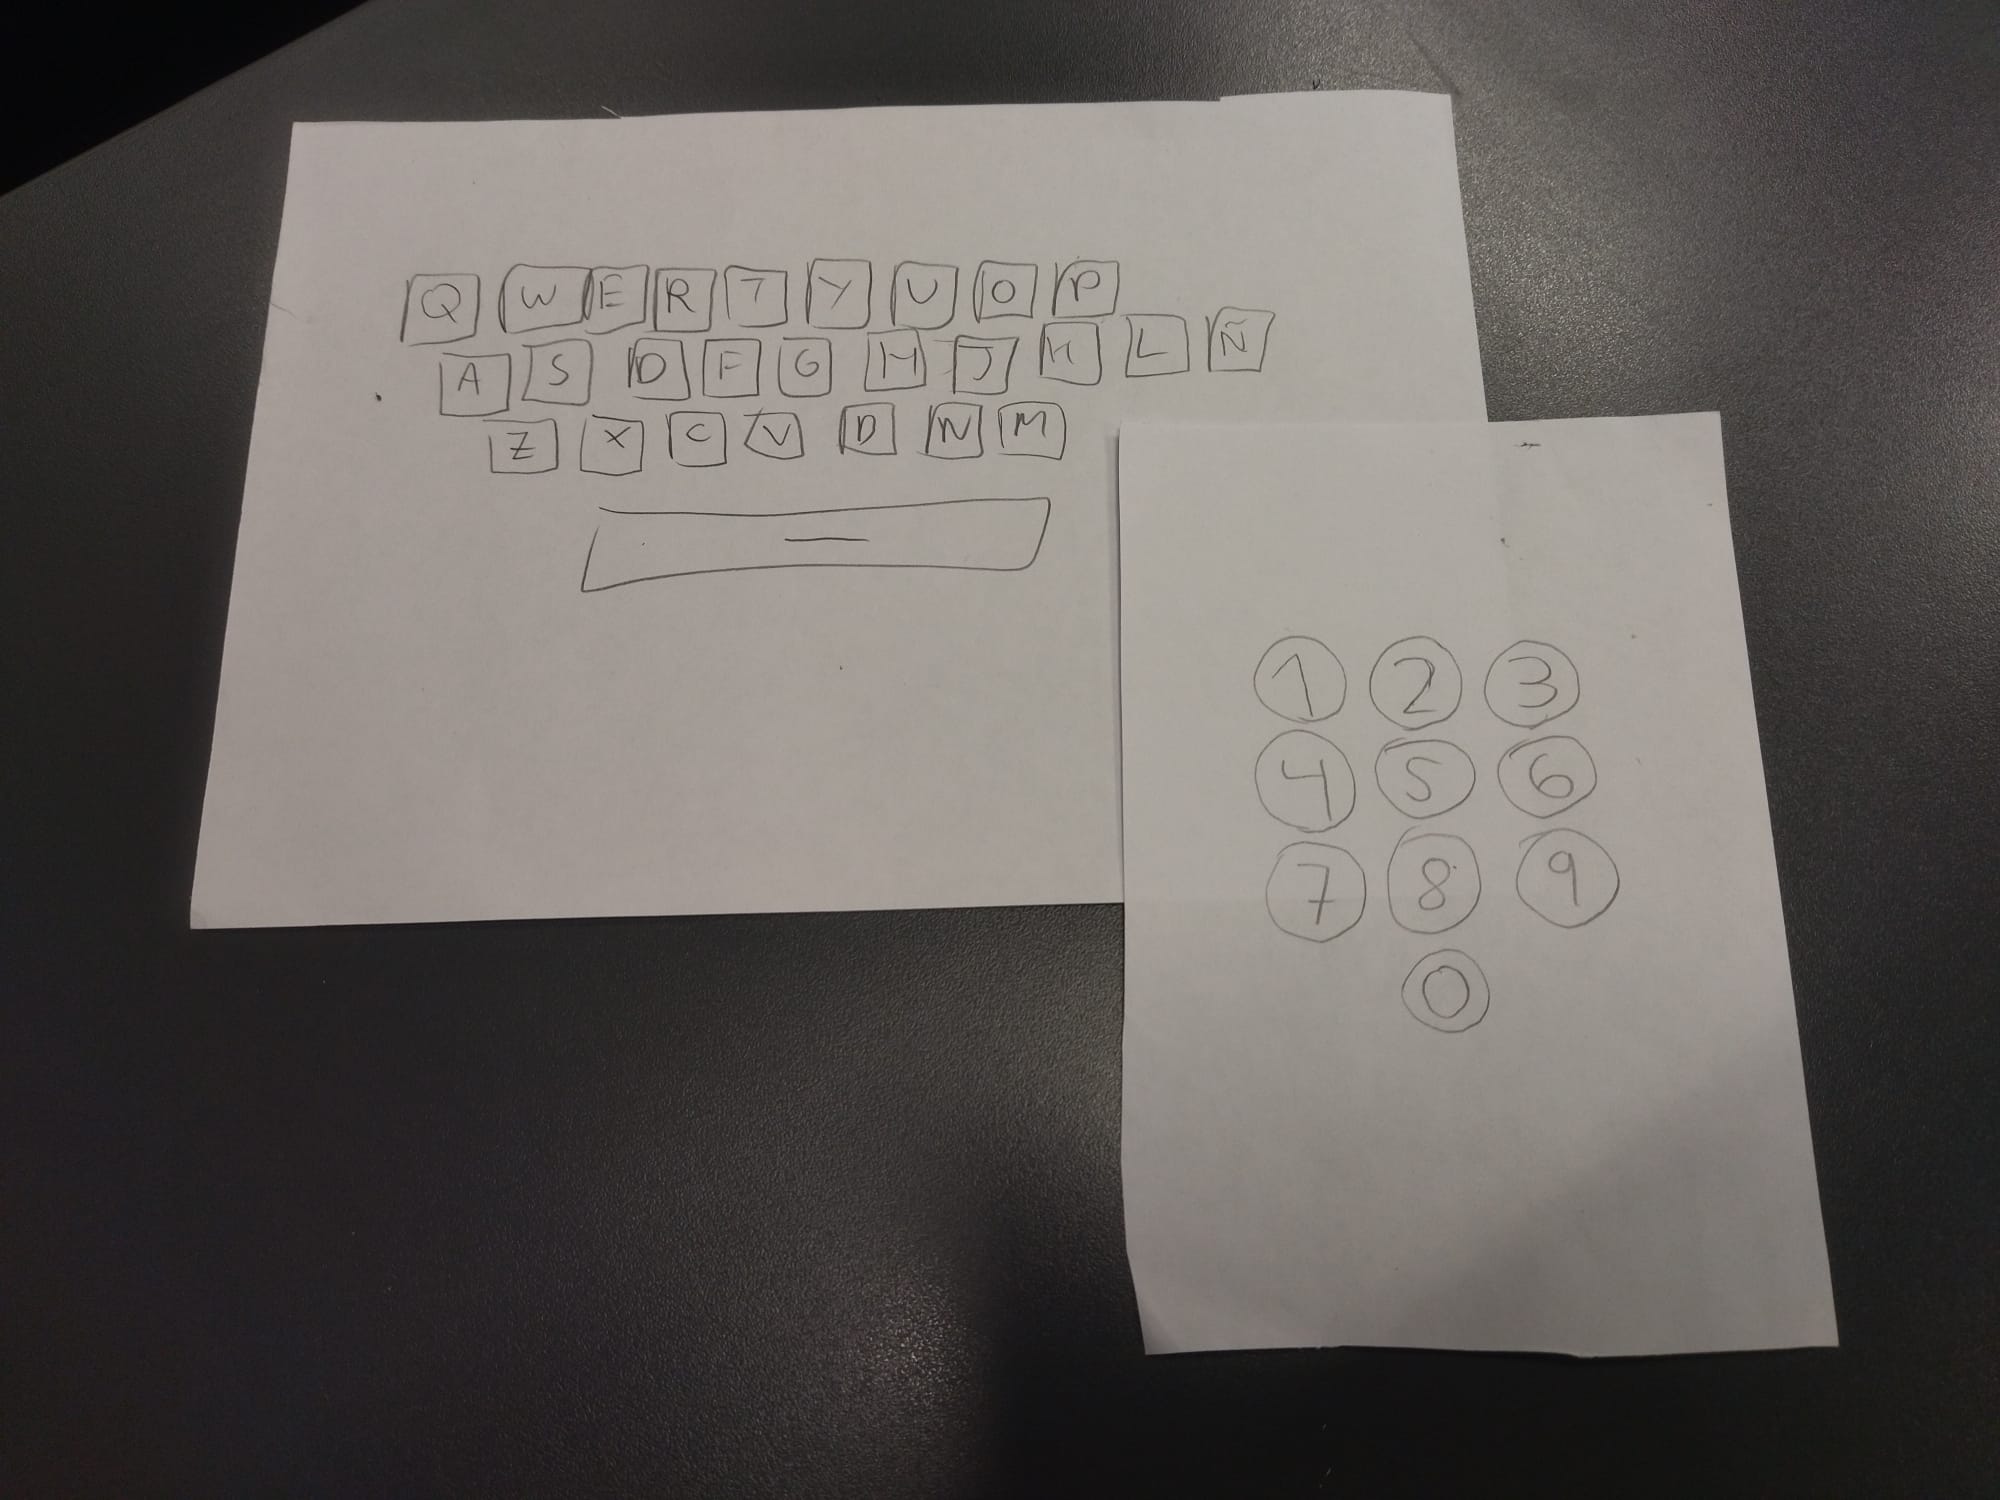 Q W E R T Y U O P
A S D F G H J K L Ñ
Z X C V D N M
1 2 3
4 5 6
7 8 9
0